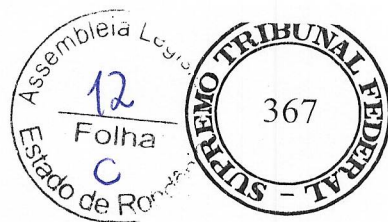 Assembleia Legis
12
Folha
C
Estado de Rondôn
SUPREMO TRIBUNAL FEDERAL
367